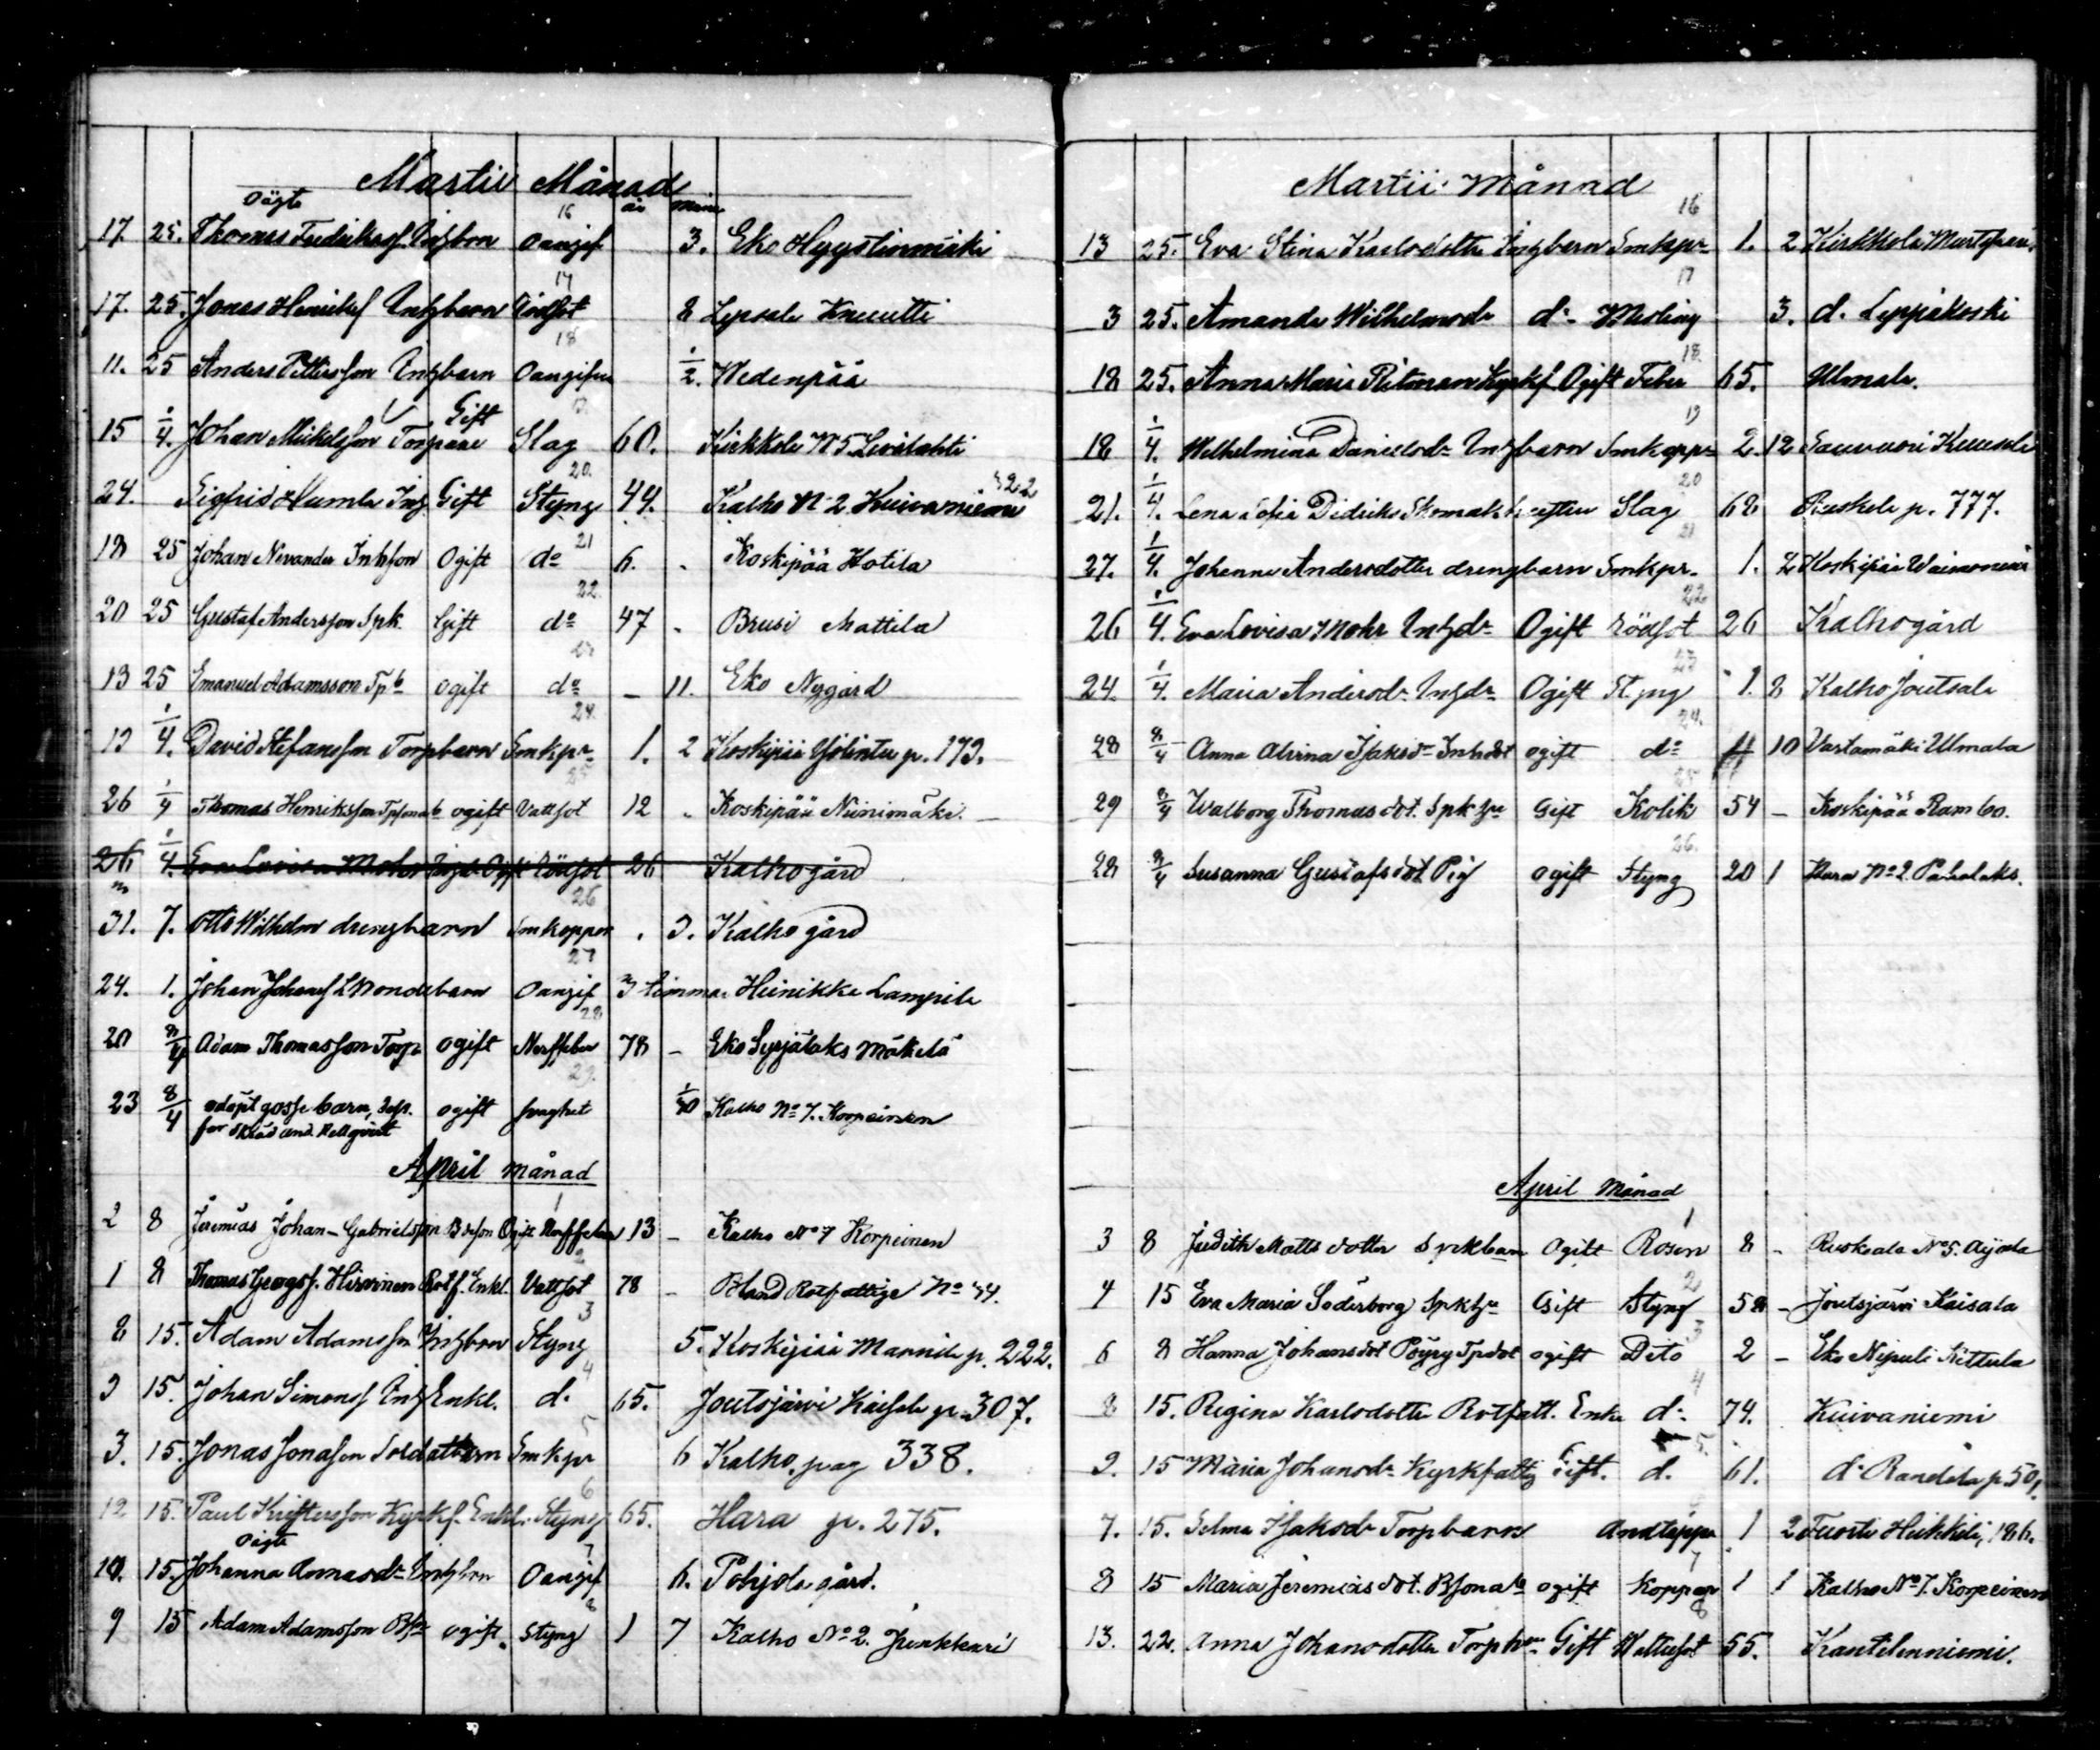 Martii Månad
oägta 16 år mån
17. 25. Thomas Fredrikss. Inhbrn Oangif 3. Eko Hyystinmäki
17
17. 25. Jonas Henrikss Inhbarn Rödsot 8 Lepsala Knuutti
18
11. 25 Anders Pettersson Inhbarn Oangifven 1/2. Wedenpää
Gift
15 1/4. Johan Mickelsson Torpare Slag 60. Kirkkola N 5 Levälahti
20. 322
24. Sigfrid Humla Inh. Gift Styng 44. Kalho N 2 Kuivaniemi
21
18 25 Johan Nevander Inhson Ogift do 6. Koskipää Hotila
22.
20 25 Gustaf Andersson Spk. Gift do 47 Brusi Mattila
13 25 Emanuel Adamsson Tpb ogift do – 11. Eko Nygård
24.
13 1/4. David Stefansson Torpbarn Smkpr 1. 2 Koskipää Ylöintu p. 173.
25
26 1/4 Thomas Henriksson Tpsonab ogift Vattsot 12 Koskipää Niinimäki
26 1/4. Eva Lovisa Mohr Inhdr Ogift Rödsot 26 Kalhogård
26
31. 7. Otto Wilhelm drengbarn Smkoppor 3. Kalho gård
27
24. 1. Johan Johanss Landbondebarn Oangif 3 timmar Heinikka Lampila
28
20 8/4 Adam Thomasson Torp ogift Nerffeber 78 – Eko Syrjälaks Mäkelä
29.
23 8/4 odöpt gosse barn, Dess. ogift svaghet 1/30 Kalho No 7. Korpeinen
far Skräd And. Hellqvist
April månad
1
2 8 Jeremias Johan-Gabrielsson Bdeson Ogift Nerffeber 13 – Kalho No 7 Korpeinen
2
1 8 Thomas Georgss. Hirvonen Rotf. Enkl. Vattsot 78 – Bland Rotfattige No 44.
3
2 15. Adam Adamsson Inhbrn Styng 5. Koskipää Mannila p. 222.
4
3 15. Johan Simonss Inh Enkl. d. 65. Joutsjärvi Kaisala p. 307.
5
3. 15. Jonas Jonasson Soldatbarn Smkpr 6 Kalho pag 338.
6
12 15. Paul Kristersson Kyrkf. Enkl. Styng 65. Hara p. 275.
oägta 7
10. 15. Johanna Annasdr Inhbrn Oangif 6. Pohjola gård.
8
9 15 Adam Adamsson Bsn ogift Styng 1 7 Kalho No 2. Junkkari
Martii Månad
16
13 25. Eva Stina Karlsdotter Inhbarn Smkpr 1. 2 Kirkkola Murtojärvi
17
3 25. Amanda Wilhelmsdr d. Mesling 3. d. Leppäkoski
18.
18 25. Anna Maria Ritman Kyrkf. Ogift Feber 65. Ulmala.
19
18 1/4. Wilhelmina Danielsdr Inhbarn Smkoppr 2. 12 Sauvuori Kuusela
20
21. 1/4. Lena Sofia Didriks Skomakhustru Slag 68 Ruskela p. 777.
21
27. 1/4. Johanna Andersdotter drengbarn Smkpr. 1. 2 Koskipää Waimoniemi
22
26 1/4. Eva Lovisa Mohr Inhdr Ogift Rödsot 26 Kalhogård
23
24. 1/4. Maria Andersdr Inhdr Ogift Styng 1. 8 Kalho Joutsala
24.
28 8/4 Anna Alvina Isaksdr Inhdot ogift do 10 Vartamäki Ulmala
25
29 8/4 Walborg Thomasdot. Spkhu Gift Kolik 54 – Koskipää Rambo.
26.
28 8/4 Susanna Gustafsdot. Pig ogift Styng 20 1 Hara No 2. Paholaks.
April Månad
1
3 8 Judith Mattsdotter Spkbarn Ogift Rosen 8 – Ruskeala No 5. Aijala
2
4 15 Eva Maria Söderborg Spkhu Gift Styng 58 – Joutsjärvi Kaisala
3
6 8 Hanna Johansdot Pöyry Tpdot ogift Dito 2 – Eko Nipuli Kittula
4
8 15. Regina Karlsdotter Rotfatt. Enka d. 74. Kuivaniemi
5.
9. 15 Maria Johansdr Kyrkfattig Gift. d. 61. d. Randila p. 501.
7. 15. Selma Isaksdr Torpbarn Andtäppa 1 2 Tuorti Heikkilä, 186.
7
8 15 Maria Jeremiasdot. Bsonab ogift Koppor 1 1 Kalho No 7. Korpeinen
8
13. 22. Anna Johansdotter Torphu Gift Wattusot 55. Kantelenniemi.